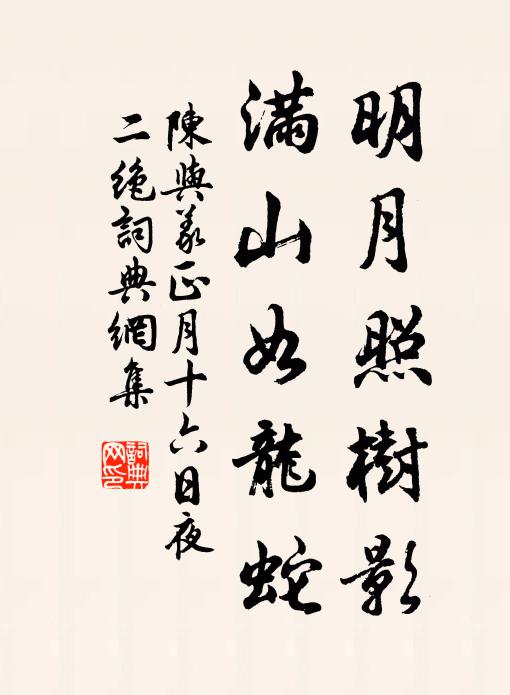 明月照樹影
滿山如龍蛇
陳與義正月十六日夜
二絕詞典網集
詞典
网印